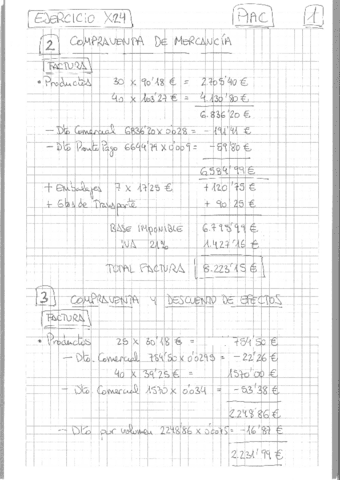 EJERCICIO X24 PIAC 1
2 COMPRAVENTA DE MERCANCÍA
FACTURA
• Productos 30 x 90'18 € = 2705'40 €
40 x 103'27 € = 4.130'80 €
6.836'20 €
— Dto Comercial 6836'20 x 0'028 = - 191'41 €
— Dto Pronto Pago 6644'79 x 0'009 = - 59'80 €
6584'99 €
+ Embalajes 7 x 17'25 € + 120'75 €
+ Gtos de Transporte + 90'25 €
BASE IMPONIBLE 6.795'99 €
IVA 21% 1.427'16 €
TOTAL FACTURA 8.223'15 €
3 COMPRAVENTA Y DESCUENTO DE EFECTOS
FACTURA
• Productos 25 x 30'18 € = 754'50 €
— Dto. Comercial 754'50 x 0'0295 = - 22'26 €
40 x 39'25 € = 1570'00 €
— Dto. Comercial 1570 x 0'034 = - 53'38 €
2248'86 €
— Dto por volumen 2248'86 x 0'0075 = - 16'87 €
2231'99 €